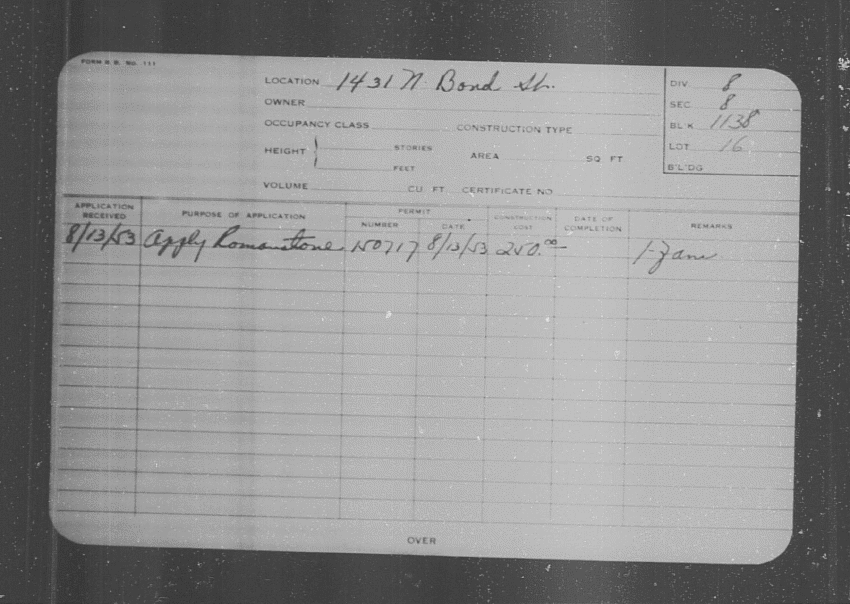 FORM B. B. No. 111
LOCATION 1431 N. Bond St.
OWNER
OCCUPANCY CLASS CONSTRUCTION TYPE
HEIGHT STORIES FEET AREA SQ. FT.
VOLUME CU. FT. CERTIFICATE NO.
DIV. 8
SEC. 8
BL'K 1138
LOT 16
B'L'DG
APPLICATION RECEIVED PURPOSE OF APPLICATION PERMIT NUMBER DATE CONSTRUCTION COST DATE OF COMPLETION REMARKS
8/13/53 Apply Romanstone 150717 8/13/53 250.00
OVER